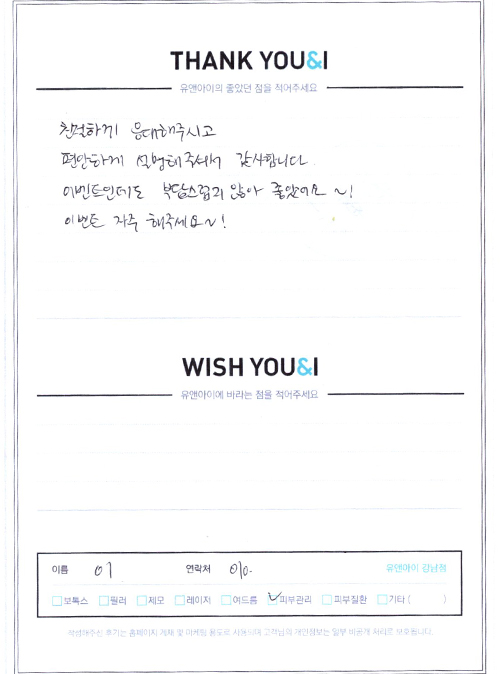 THANK YOU&I
유앤아이의 좋았던 점을 적어주세요
친절하게 응대해주시고
편안하게 설명해주셔서 감사합니다
이벤트인데도 부담스럽지 않아 좋았어요 ~!
이벤트 자주 해주세요~!
WISH YOU&I
유앤아이에 바라는 점을 적어주세요
이름 연락처 010- 유앤아이 강남점
보톡스 필러 제모 레이저 여드름 피부관리 피부질환 기타 ( )
작성해주신 후기는 홈페이지 게재 및 마케팅 용도로 사용되며 고객님의 개인정보는 일부 비공개 처리로 보호됩니다.